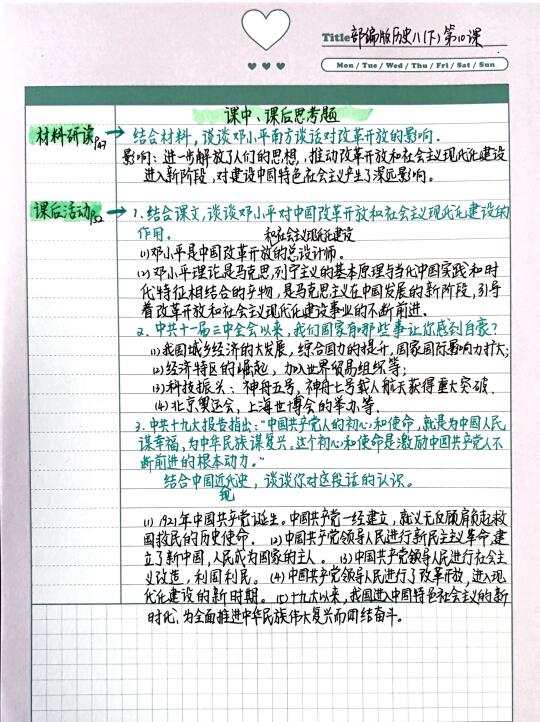 Title 部编版历史八(下)第10课
Mon / Tue / Wed / Thu / Fri / Sat / Sun
课中、课后思考题
材料研读P47 结合材料，谈谈邓小平南方谈话对改革开放的影响.
影响：进一步解放了人们的思想，推动改革开放和社会主义现代化建设
进入新阶段，对建设中国特色社会主义产生了深远影响。
课后活动P52 1.结合课文，谈谈邓小平对中国改革开放和社会主义现代化建设的
作用。
和社会主义现代化建设
(1)邓小平是中国改革开放的总设计师。
(2)邓小平理论是马克思,列宁主义的基本原理与当代中国实践和时
代特征相结合的产物，是马克思主义在中国发展的新阶段,引导
着改革开放和社会主义现代化建设事业的不断前进.
2、中共十一届三中全会以来,我们国家有哪些事让你感到自豪？
(1)我国城乡经济的大发展，综合国力的提升，国家国际影响力扩大；
(2)经济特区的崛起，加入世界贸易组织等；
(3)科技振头：神舟五号,神舟七号载人航天获得重大突破.
(4)北京奥运会，上海世博会的举办等.
3.中共十九大报告指出：“中国共产党人的初心和使命，就是为中国人民
谋幸福，为中华民族谋复兴。这个初心和使命是激励中国共产党人不
断前进的根本动力。”
结合中国近代史，谈谈你对这段话的认识。
现
(1)1921年中国共产党诞生。中国共产党一经建立，就义无反顾肩负起救
国救民的历史使命.(2)中国共产党领导人民进行新民主革命,建
立了新中国,人民成为国家的主人。(3)中国共产党领导人民进行社会主
义改造，利国利民。(4)中国共产党领导人民进行了改革开放,进入现
代化建设的新时期。(5)十九大以来,我国进入中国特色社会主义的新
时代、为全面推进中华民族伟大复兴而团结奋斗。